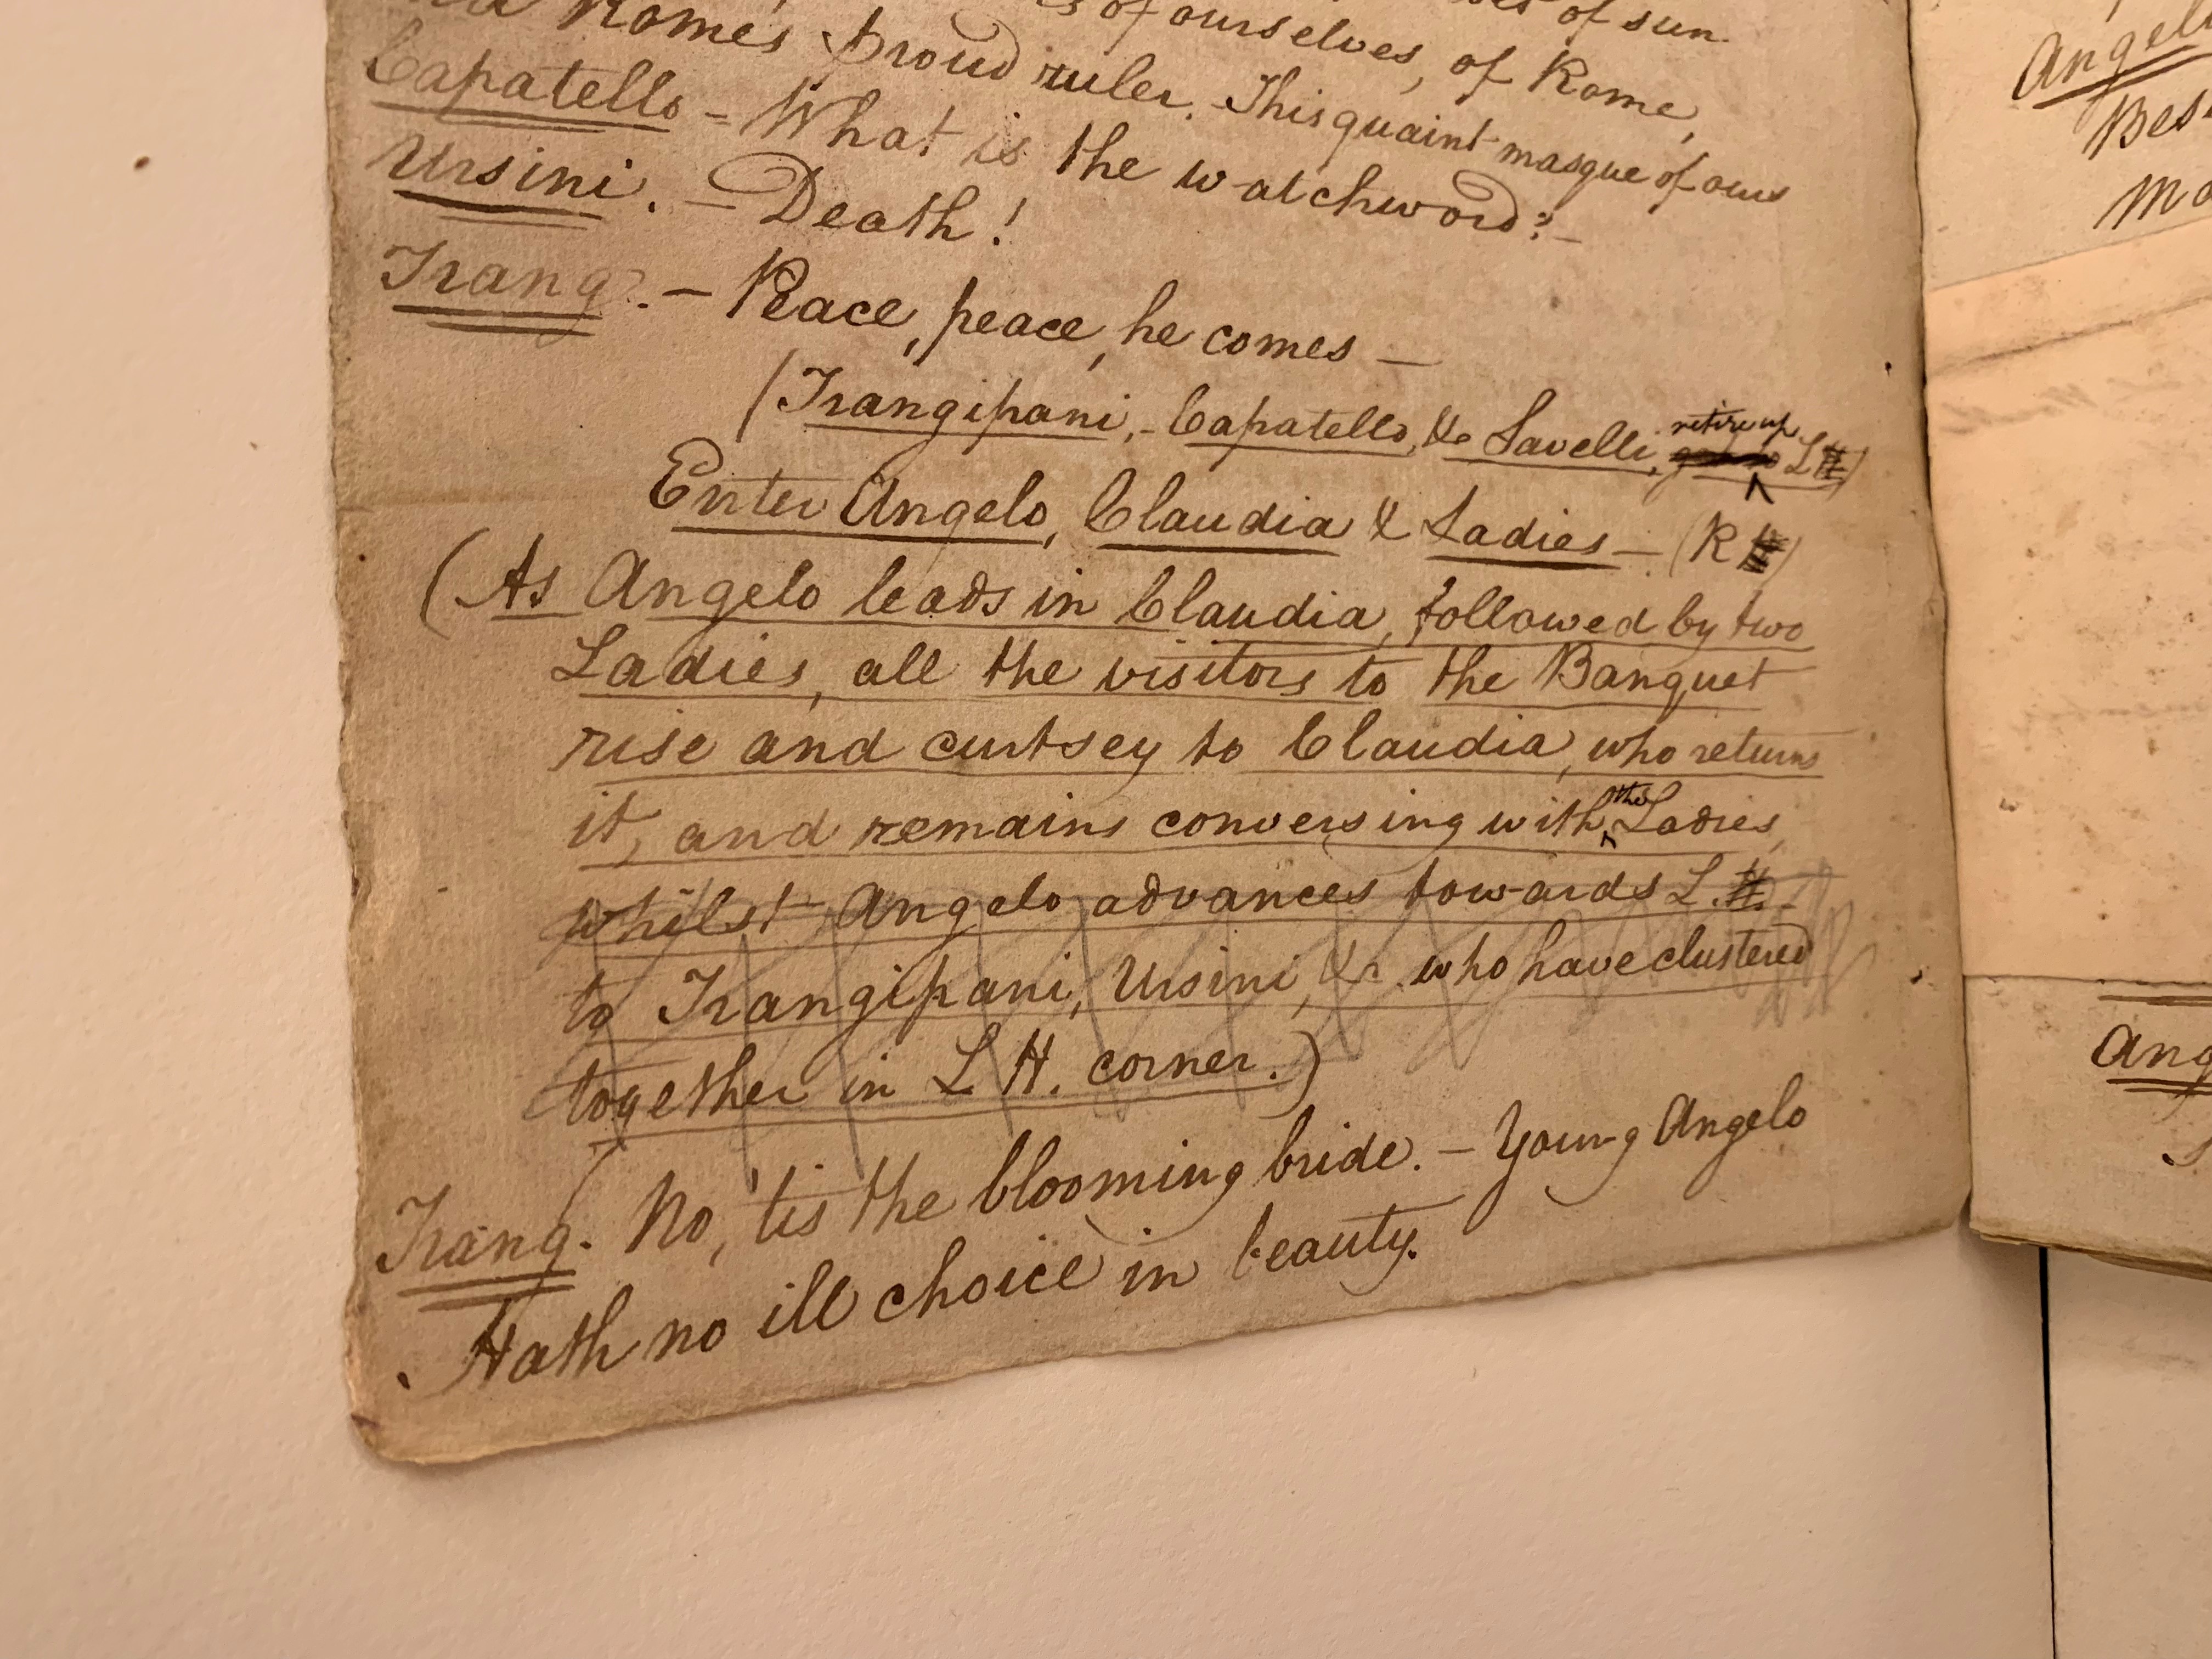 of sun
of ourselves, of Rome,
Rome's proud ruler. - This quaint masque of ours
Capatello = What is the watchword? -
Ursini. - Death!
Frang. - Peace, peace, he comes -
(Frangipani, - Capatello, & Savelli, retire up L H)
Enter Angelo, Claudia & Ladies - (R H)
(As Angelo leads in Claudia, followed by two
Ladies, all the visitors to the Banquet
rise and curtsey to Claudia, who returns
it, and remains conversing with the Ladies,
whilst Angelo advances towards L. H. -
to Frangipani, Ursini, &c. who have clustered
together in L H. corner.)
Frang. No, 'tis the blooming bride. - Young Angelo
Hath no ill choice in beauty.
Angel
Bes
Ma
Ang